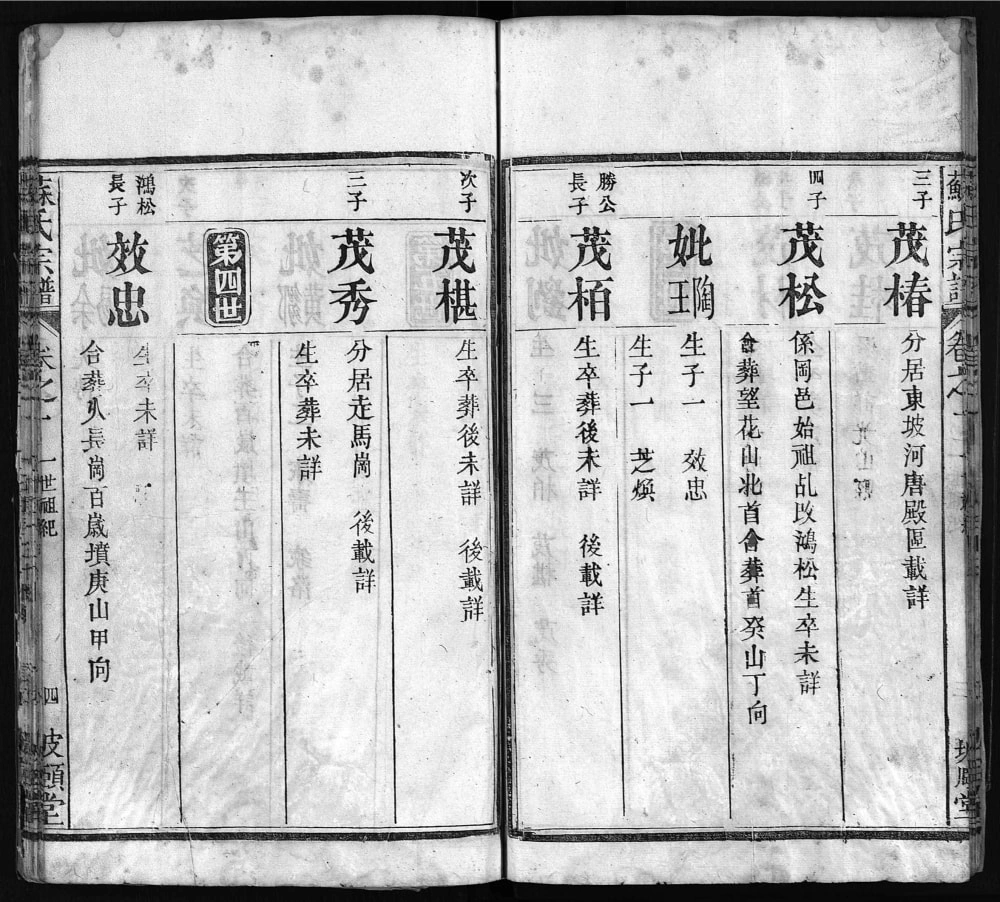 蘇氏宗譜
卷之一
三子
茂椿
分居東坡河唐殿區載詳
四子
茂松
係岡邑始祖乩改鴻松生卒未詳
合葬望花山北首合葬首癸山丁向
妣陶王
生子一 效忠
生子一 芝煥
勝公長子
茂栢
生卒葬後未詳 後載詳
次子
茂椹
生卒葬後未詳 後載詳
三子
茂秀
分居走馬崗 後載詳
生卒葬未詳
第四世
鴻松長子
效忠
生卒未詳
合葬從吳崗百歲墳庚山甲向
蘇氏宗譜
卷之一
一世祖紀
四
坡頤堂